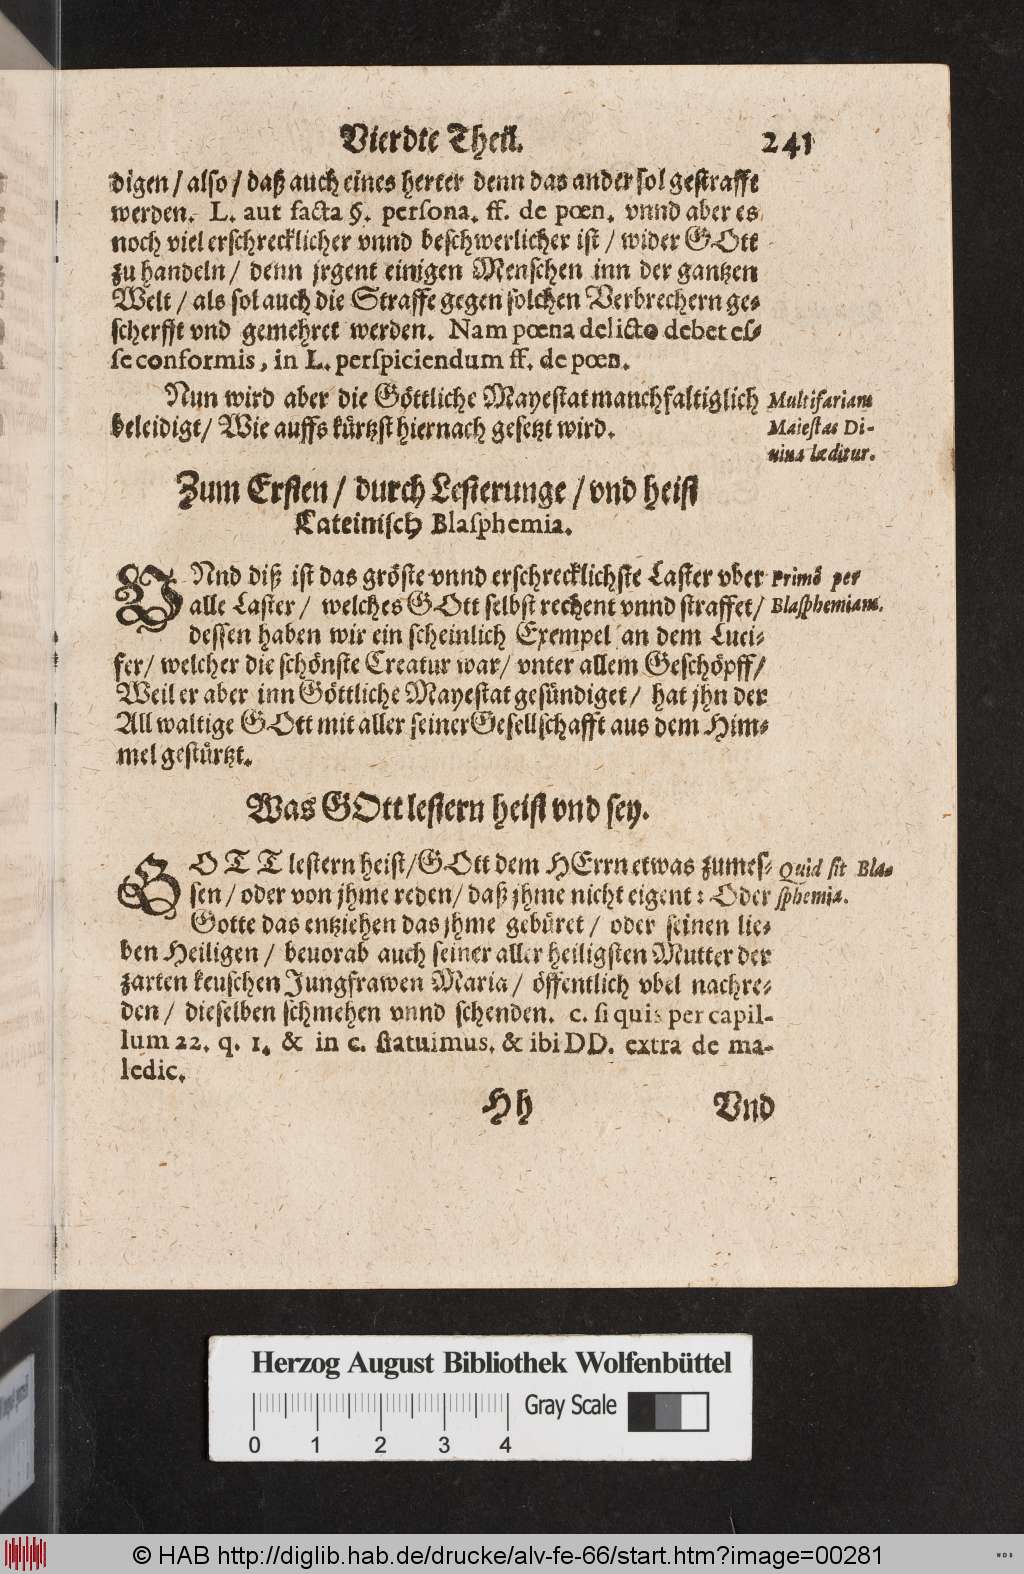 Vierdte Theil. 241
digen / also / daß auch eines herter denn das ander sol gestrafft
werden. L. aut facta §. persona. ff. de pœn. vnnd aber es
noch viel erschrecklicher vnnd beschwerlicher ist / wider GOtt
zu handeln / denn jrgent einigen Menschen inn der gantzen
Welt / als sol auch die Straffe gegen solchen Verbrechern ge-
scherfft vnd gemehret werden. Nam pœna delicto debet es-
se conformis, in L. perspiciendum ff. de pœn.
Nun wird aber die Göttliche Mayestat manchfaltiglich
beleidigt / Wie auffs kürtzst hiernach gesetzt wird.
Multifariam
Maiestas Di-
uina læditur.
Zum Ersten / durch Lesterunge / vnd heist
Lateinisch Blasphemia.
VNnd diß ist das gröste vnnd erschrecklichste Laster vber
alle Laster / welches GOtt selbst rechent vnnd straffet /
dessen haben wir ein scheinlich Exempel an dem Luci-
fer / welcher die schönste Creatur war / vnter allem Geschöpff /
Weil er aber inn Göttliche Mayestat gesündiget / hat jhn der
Allwaltige GOtt mit aller seiner Gesellschafft aus dem Him-
mel gestürtzt.
Primò per
Blasphemiam.
Was GOtt lestern heist vnd sey.
GOTT lestern heist / GOtt dem HErrn etwas zumes-
sen / oder von jhme reden / daß jhme nicht eigent : Oder
Gotte das entziehen das jhme gebüret / oder seinen lie-
ben Heiligen / beuorab auch seiner aller heiligsten Mutter der
zarten keuschen Jungfrawen Maria / öffentlich vbel nachre-
den / dieselben schmehen vnnd schenden. c. si quis per capil-
lum 22. q. 1. & in c. statuimus. & ibi DD. extra de ma-
ledic.
Quid sit Bla-
sphemia.
Hh Vnd
Herzog August Bibliothek Wolfenbüttel
Gray Scale
0 1 2 3 4
© HAB http://diglib.hab.de/drucke/alv-fe-66/start.htm?image=00281